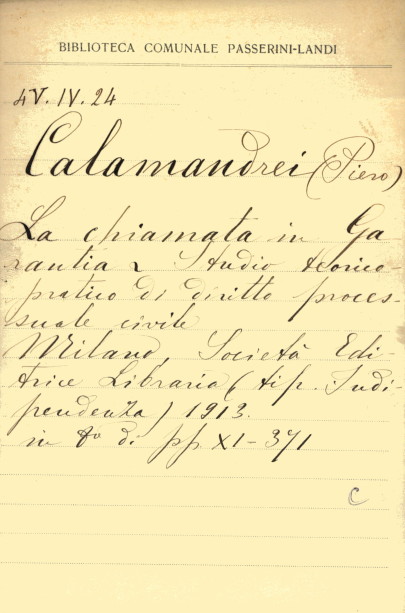 BIBLIOTECA COMUNALE PASSERINI-LANDI
4V.IV.24
Calamandrei (Piero)
La chiamata in Ga
rantia Studio teorico-
pratico di diritto proces-
suale civile
Milano, Società Edi-
trice Libraria (tip. Indi-
pendenza) 1913.
in 8º di pp. XI-371
C